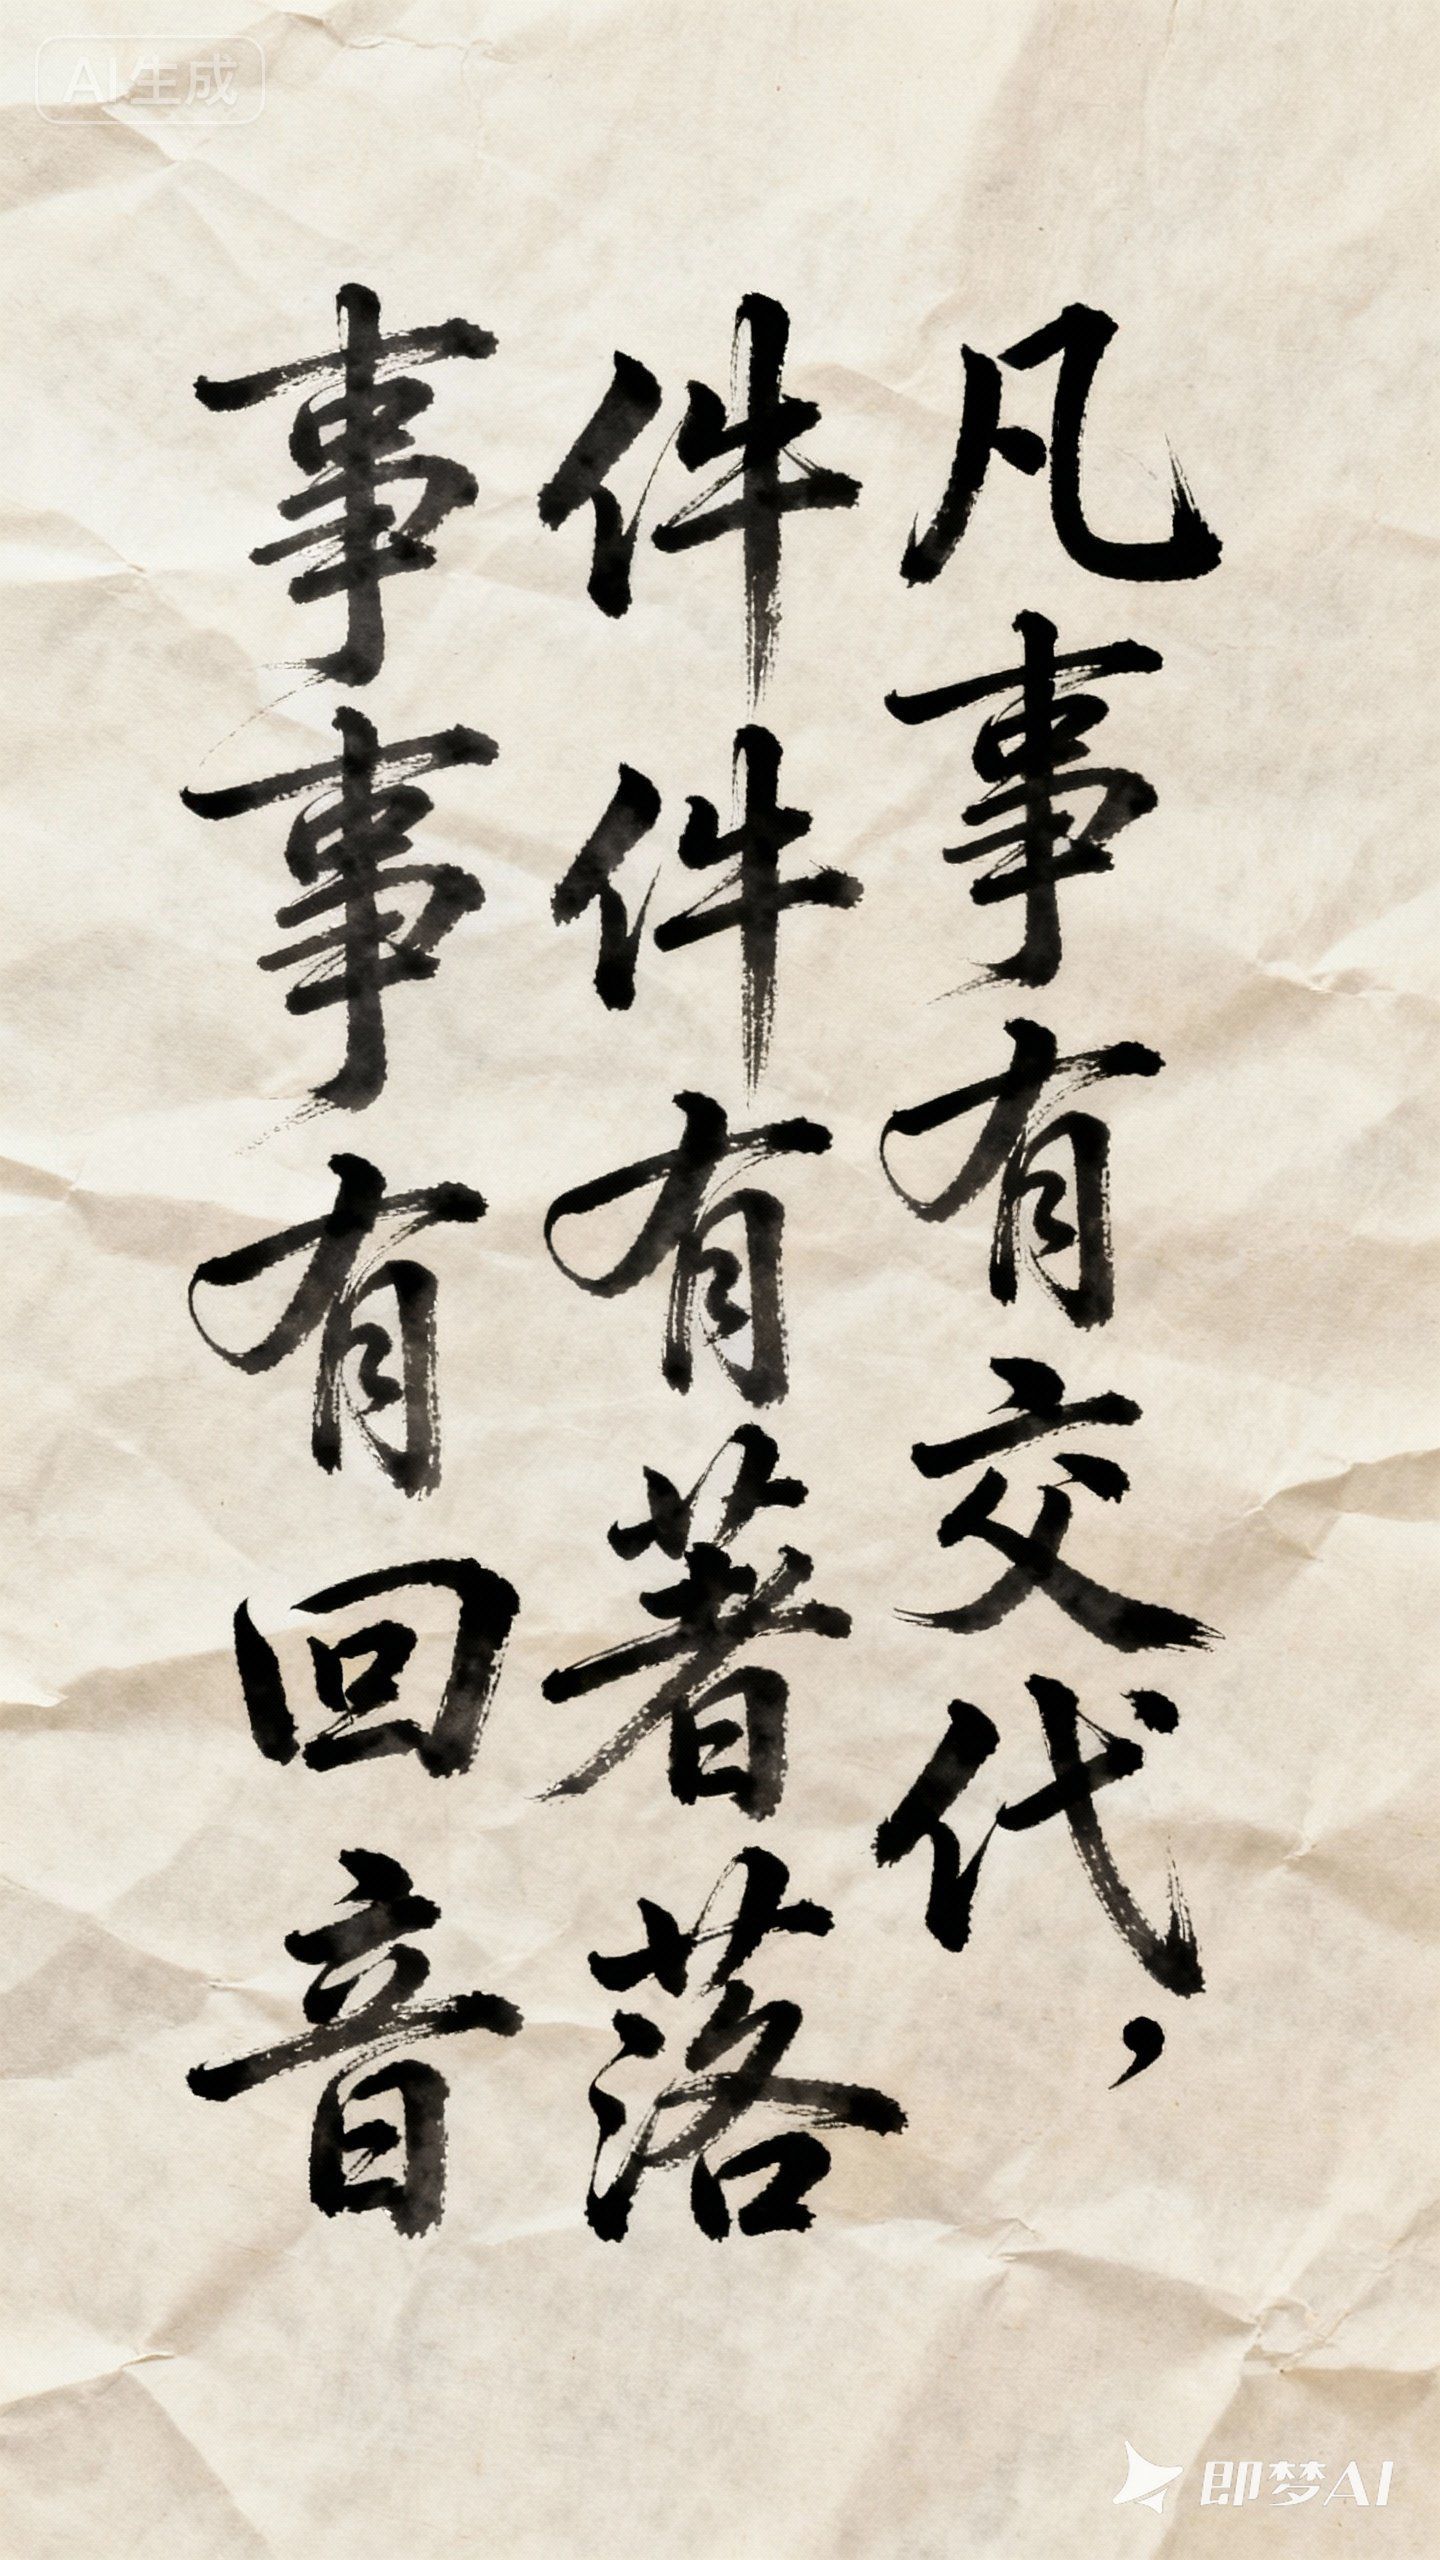 AI生成
凡事有交代，
件件有著落
事事有回音
即梦AI